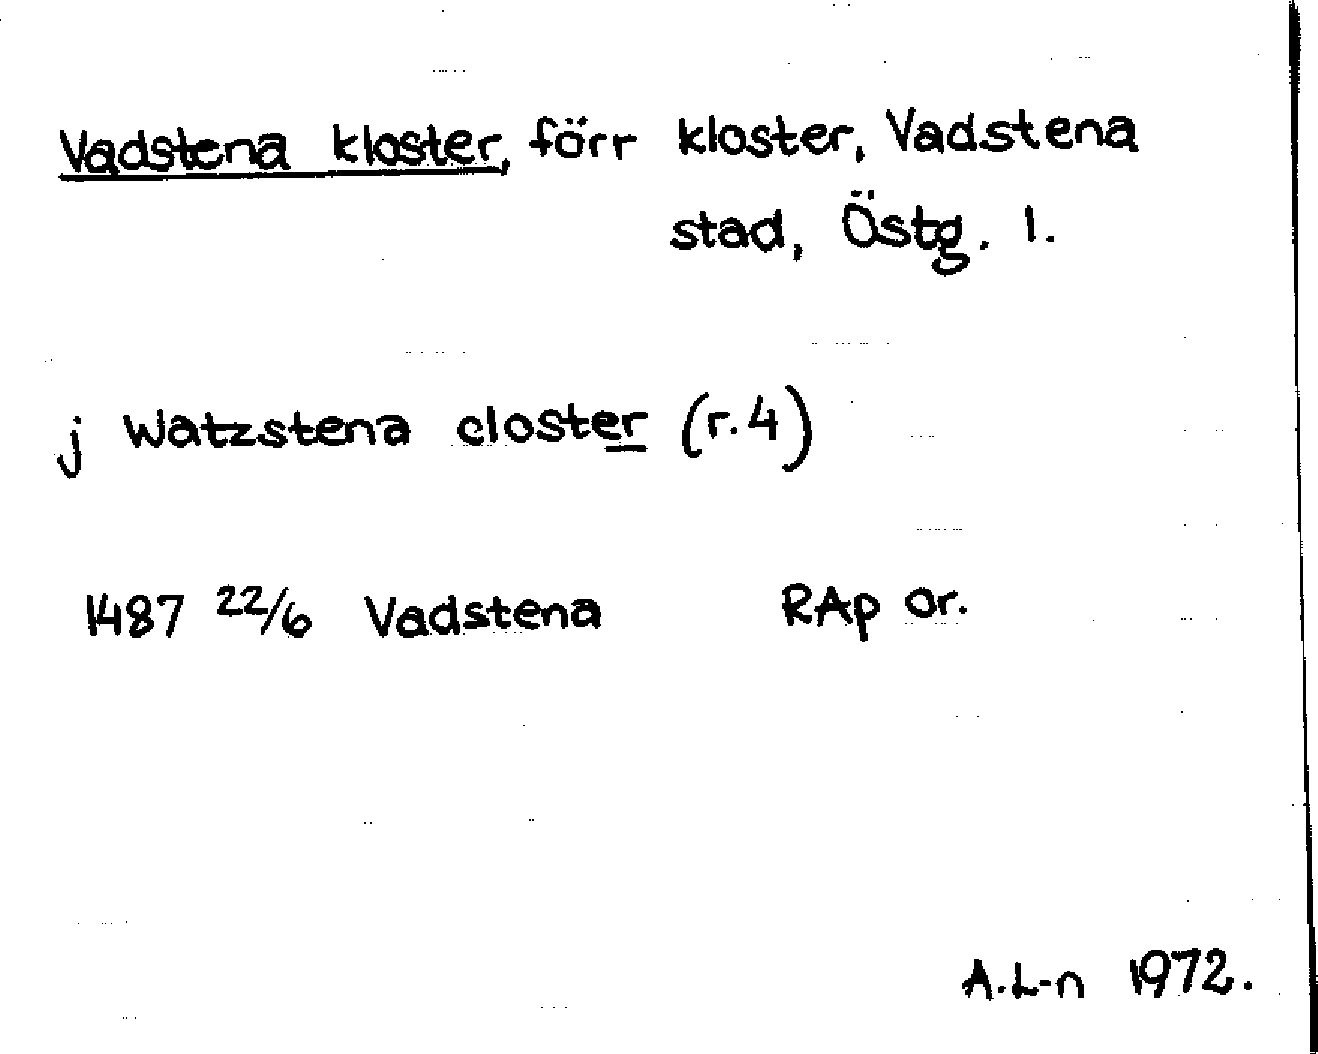 Vadstena kloster, förr kloster, Vadstena
stad, Östg. l.
j Watzstena closter (r.4)
1487 22/6 Vadstena RAp or.
A.L-n 1972.